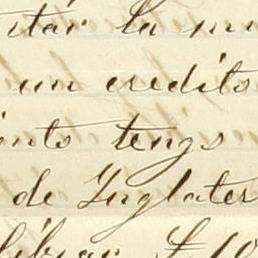 itár la mi
un credito
ento tengo
de Inglater
libras £10